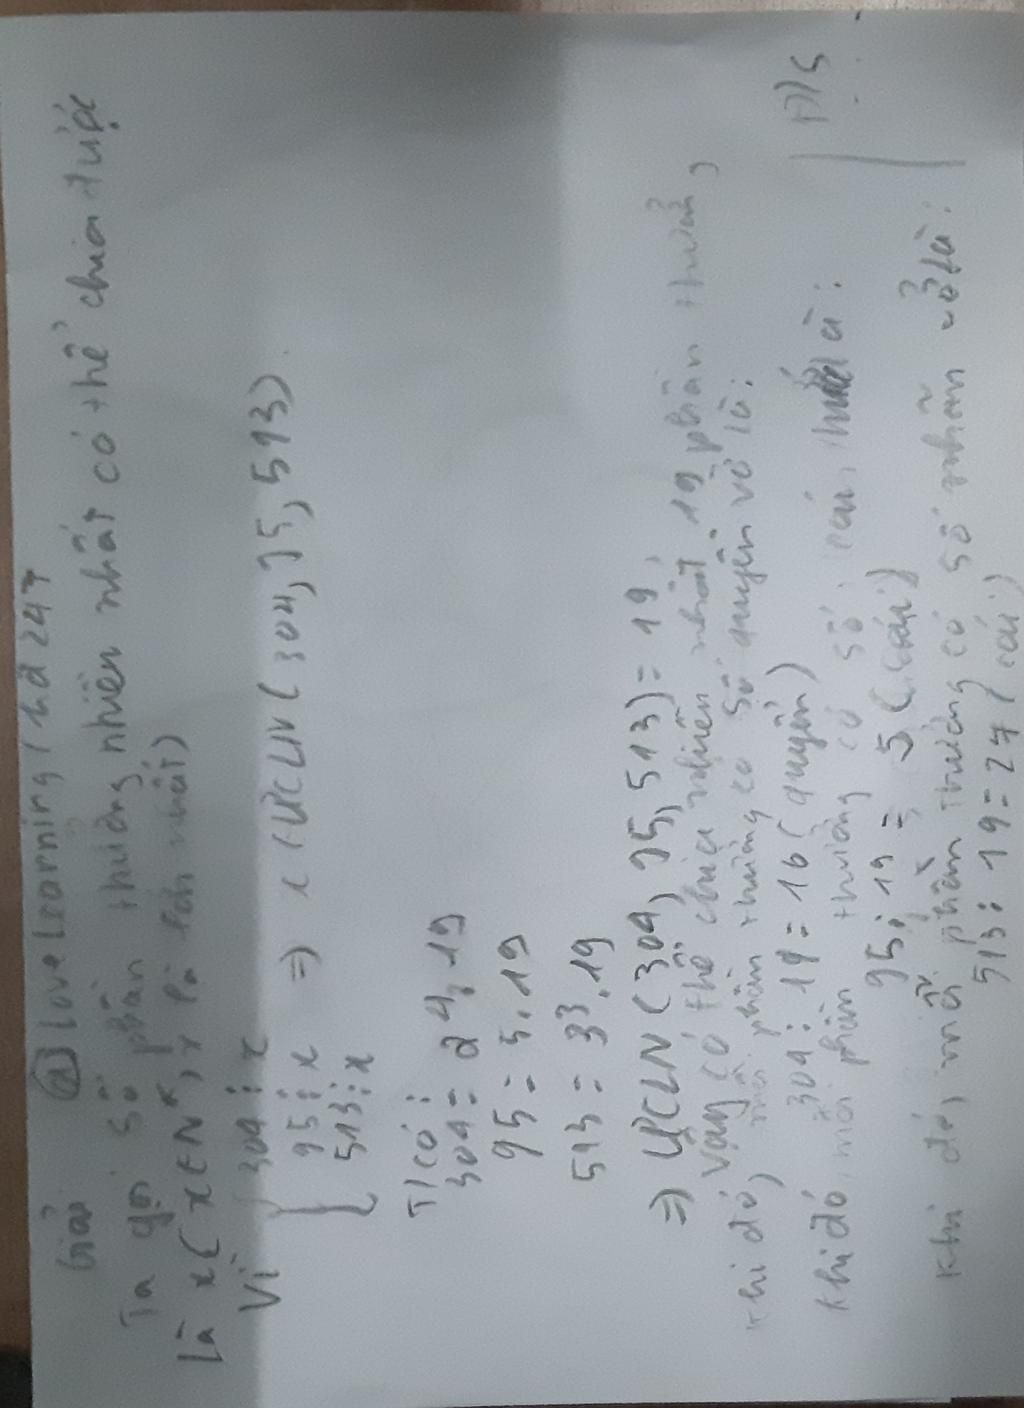 Giải @Lovelearning/hd247
Ta gọi số phần thưởng nhiên nhất có thể chia được
là x (x ∈ N*, x là lớn nhất)
Vì { 304 ⋮ x
95 ⋮ x => x (ƯCLN (304, 95, 513)
513 ⋮ x
T/có:
304 = 2⁴.19
95 = 5.19
513 = 3³.19
=> ƯCLN (304, 95, 513) = 19,
Vậy có thể chia nhiên nhất 19 phần thưởng,
khi đó, mỗi phần thưởng có số quyển vở là:
304 : 19 = 16 (quyển)
khi đó mỗi phần thưởng có số cái là:
95 : 19 = 5 (cái)
Khi đó, mỗi phần thưởng có số nhãn vở là:
513 : 19 = 27 (cái)
Đ/S